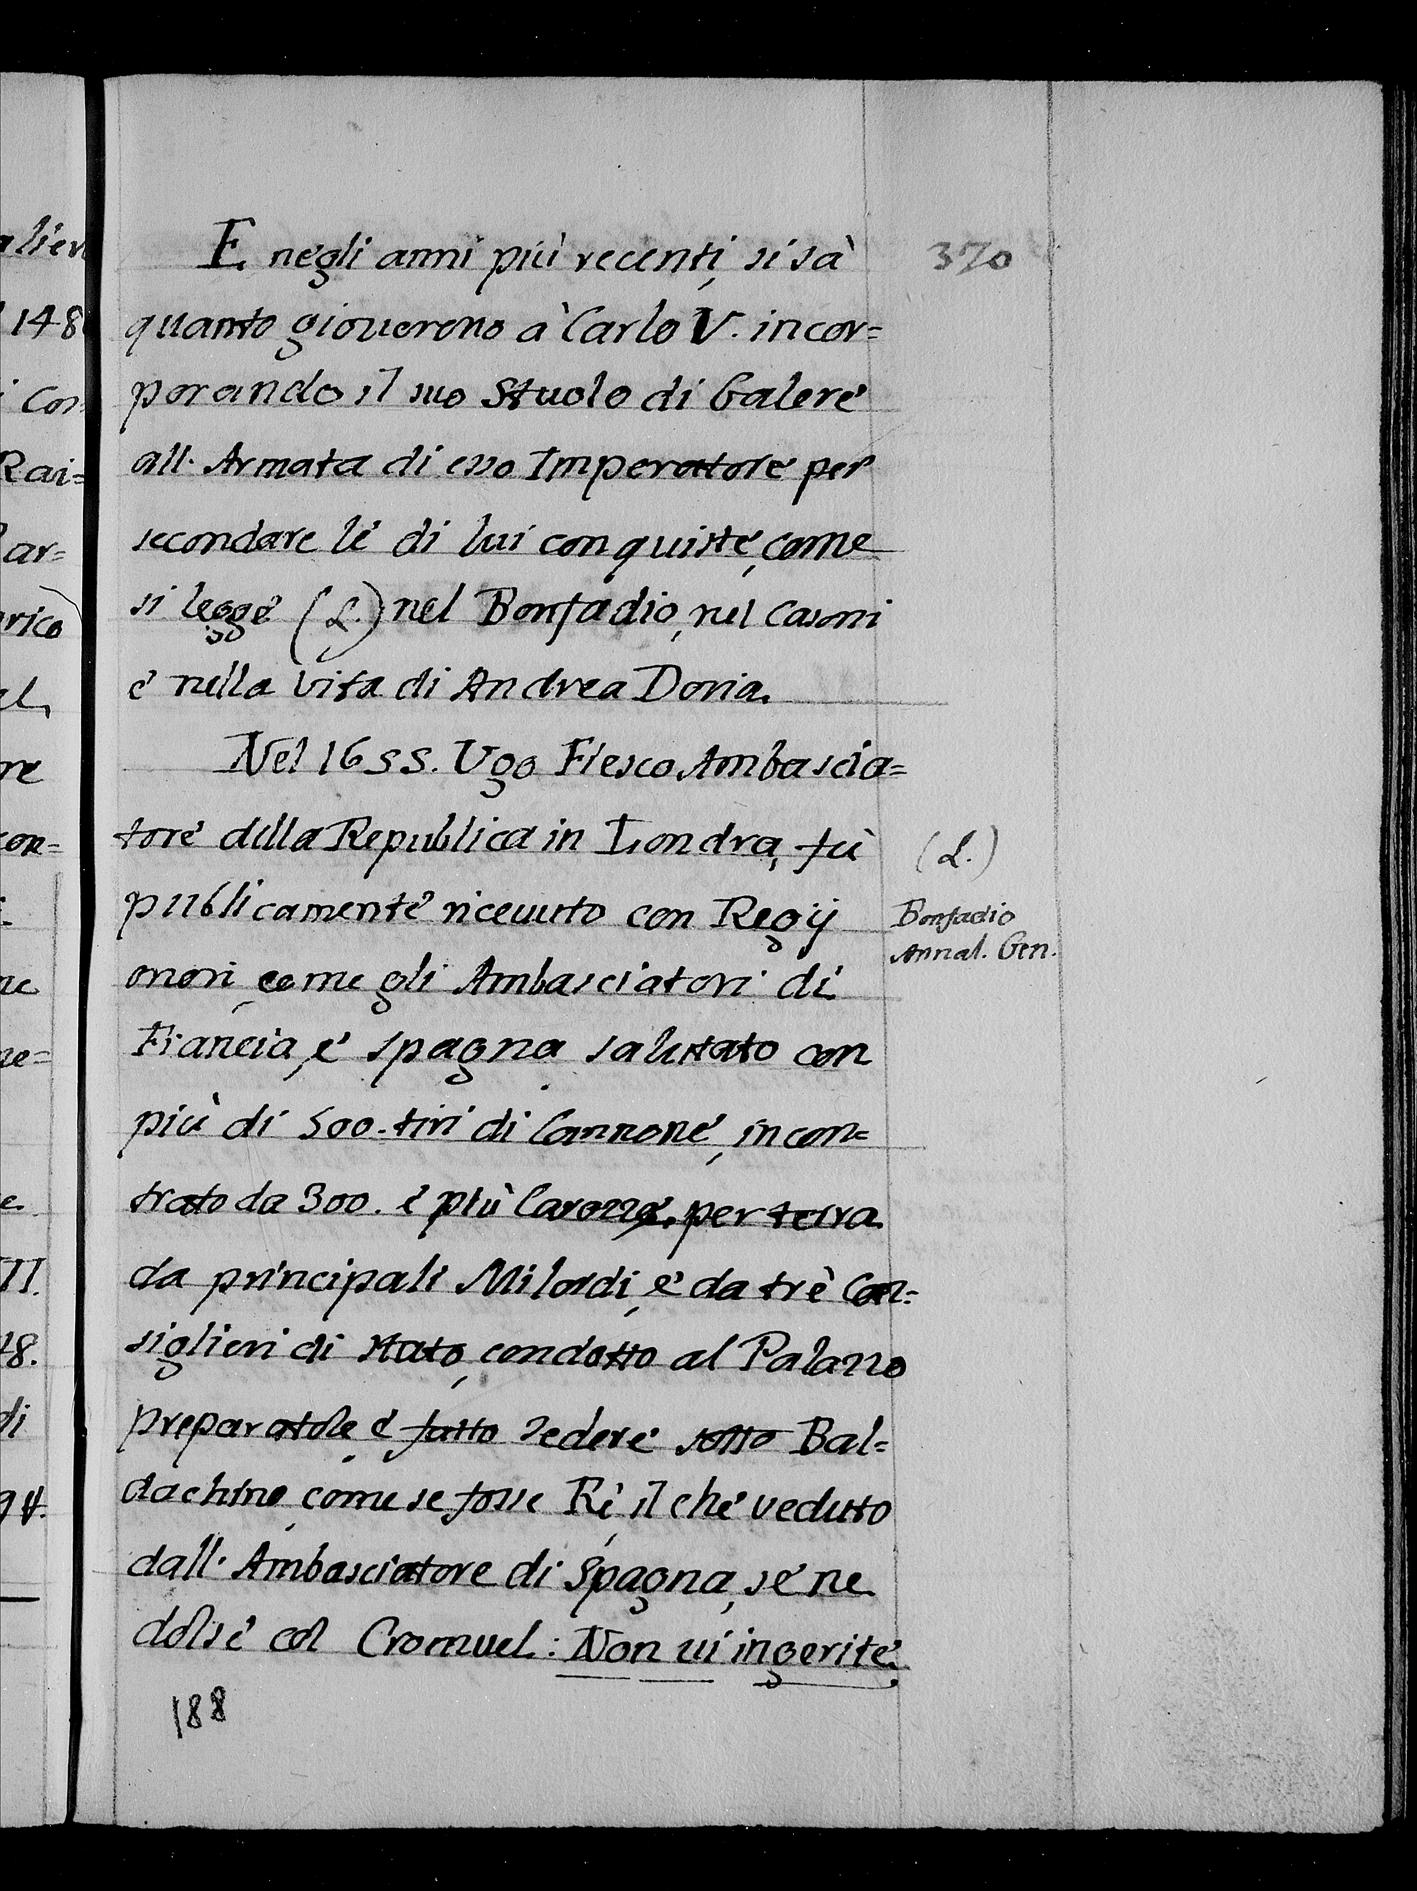 E negli anni più recenti, si sà
370
quanto giouorono à Carlo V. incor=
porando il suo Stuolo di Galere
all. Armata di esso Imperatore per
secondare le di lui conquiste, come
si legge (L.) nel Bonfadio, nel Casoni
e nella vita di Andrea Doria.
Nel 1655. Ugo Fiesco Ambascia=
tore della Republica in Londra, fù
publicamente riceuuto con Regij
onori, come gli Ambasciatori di
Francia, e Spagna salutato con
più di 500. tiri di Cannone, incon=
trato da 300. e più Carozze, per terra
da principali Milordi, e da trè Con=
siglieri di stato, condotto al Palazzo
preparatole e fatto sedere sotto Bal=
dachino, come se fosse Rè, il che veduto
dall. Ambasciatore di Spagna, se ne
dolse col Cromuel: Non ui ingerite,
188
(L.)
Bonfadio
Annal. Gen.
alier
148
i Con
Rai=
ar=
rico
el,
re
con=
ne
ne=
e
II.
48.
di
94.